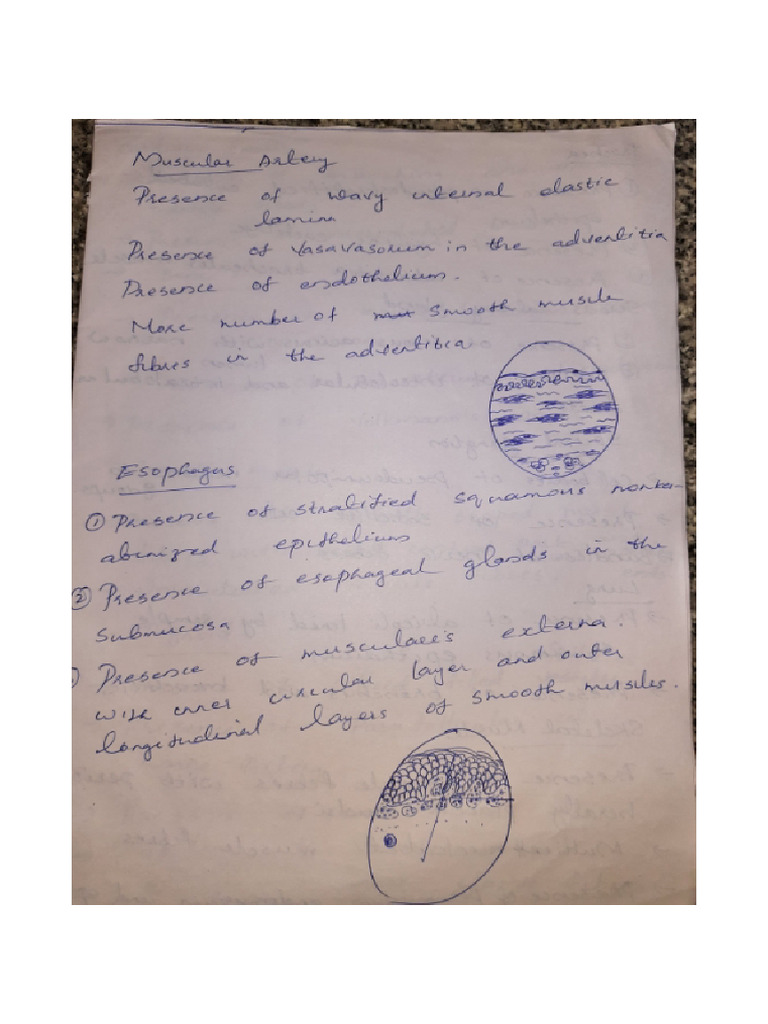 Muscular Artery
Presence of wavy internal elastic
lamina
Presence of Vasavasorum in the adventitia
Presence of endothelium.
More number of smooth muscle
fibres in the adventitia
Esophagus
① Presence of stratified squamous nonker-
atinized epithelium
② Presence of esophageal glands in the
submucosa
Presence of musculaeris externa.
with inner circular layer and outer
longitudinal layers of smooth muscles.